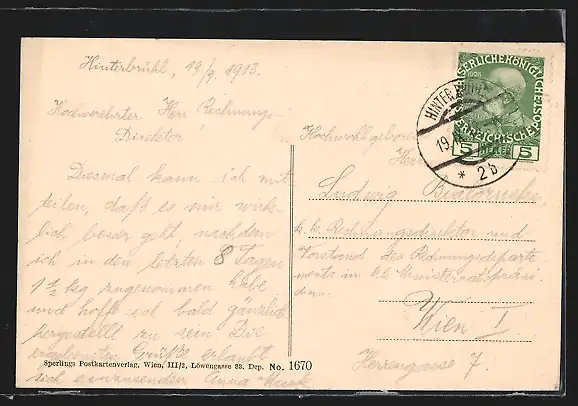 Hinterbrühl, 19/9. 1913.
Hochverehrter Herr Rechnungs-
Direktor
Diesmal kann ich mit
teilen, daß es mir wirk-
lich besser geht, nachdem
ich in den letzten 8 Tagen
1 1/2 kg zugenommen habe
und hoffe ich bald gänzlich
hergestellt zu sein. Die
ergebensten Grüße erlaubt
sich einzusenden Anna
Hochwohlgeboren
Herrn
Ludwig
k. k. Rechnungsdirektor und
Vorstand des Rechnungsdeparte-
ments im k. k. Ministerratspräsi-
dium
Wien I
Herrengasse 7.
KAISERLICHE KÖNIGLICHE
1908
ÖSTERREICHISCHE POST
5 HELLER 5
HINTERBRÜHL
19
* 2b
Sperlings Postkartenverlag, Wien, III/2, Löwengasse 33. Dep. No. 1670